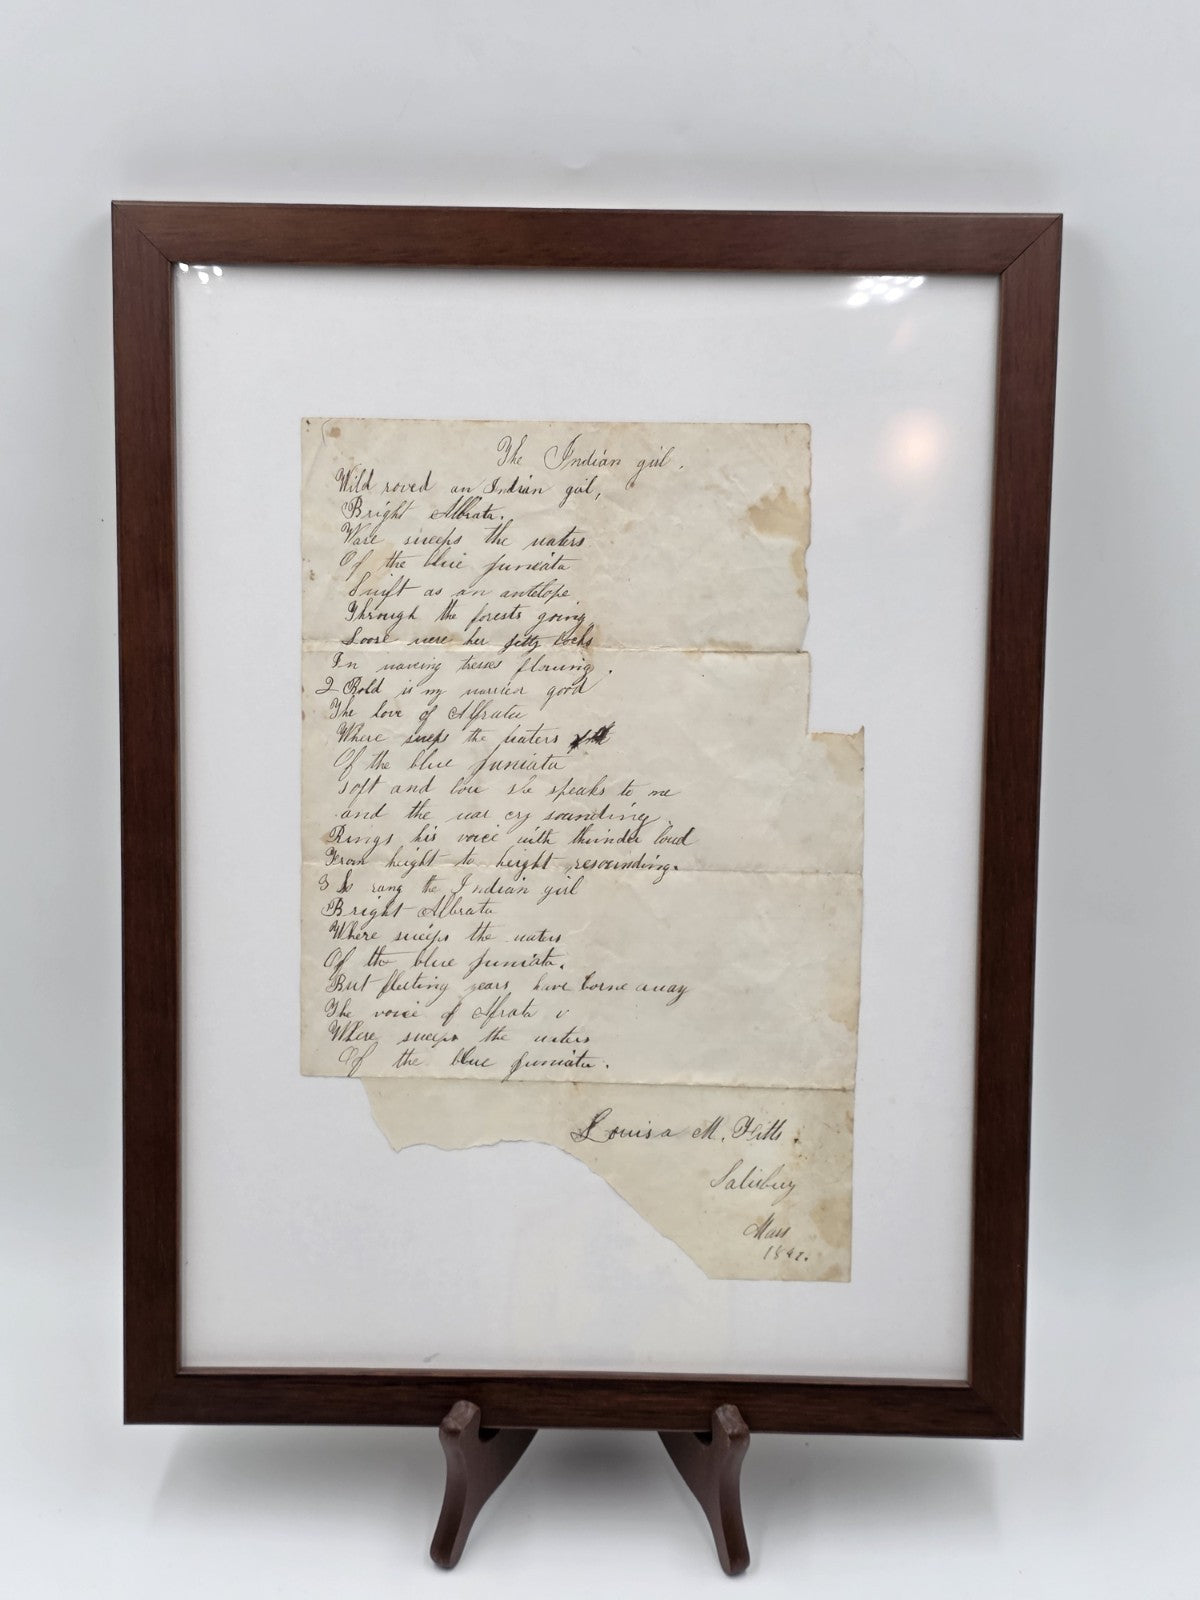 The Indian girl.
Wild roved an Indian girl,
Bright Albrata.
Ware sweeps the waters
Of the blue juniata
Swift as an antelope
Through the forests going
Loose were her jetty locks
In waveing tresses flowing.
2 Bold is my warrior good
The love of Alfrata
Where sweeps the waters
Of the blue juniata
soft and low she speaks to me
and the war cry sounding.
Rings his voice with thunder loud
From height to height resounding.
3 So rang the Indian girl
Bright Albrata
Where sweeps the waters
Of the blue juniata.
But fleeting years have borne away
The voice of Alfrata
Where sweeps the waters
Of the blue juniata.
Louisa M. Fitts.
Salisbury
Mass